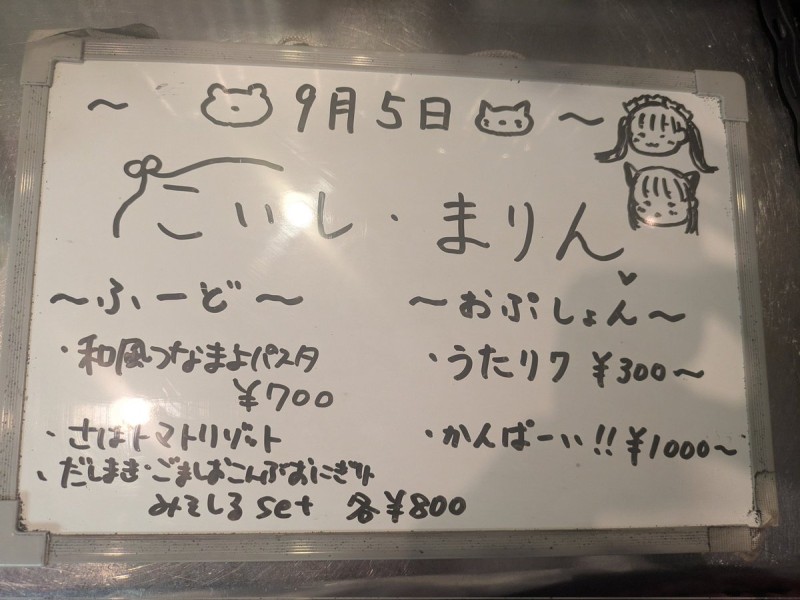 ～ 9月5日 ～
こいし・まりん
～ふーど～
・和風つなまよパスタ
¥700
・さばトマトリゾット
・だしまき・ごましおこんぶおにぎり
みそしるset 各¥800
～おぷしょん～
・うたリク ¥300～
・かんぱーい!! ¥1000～